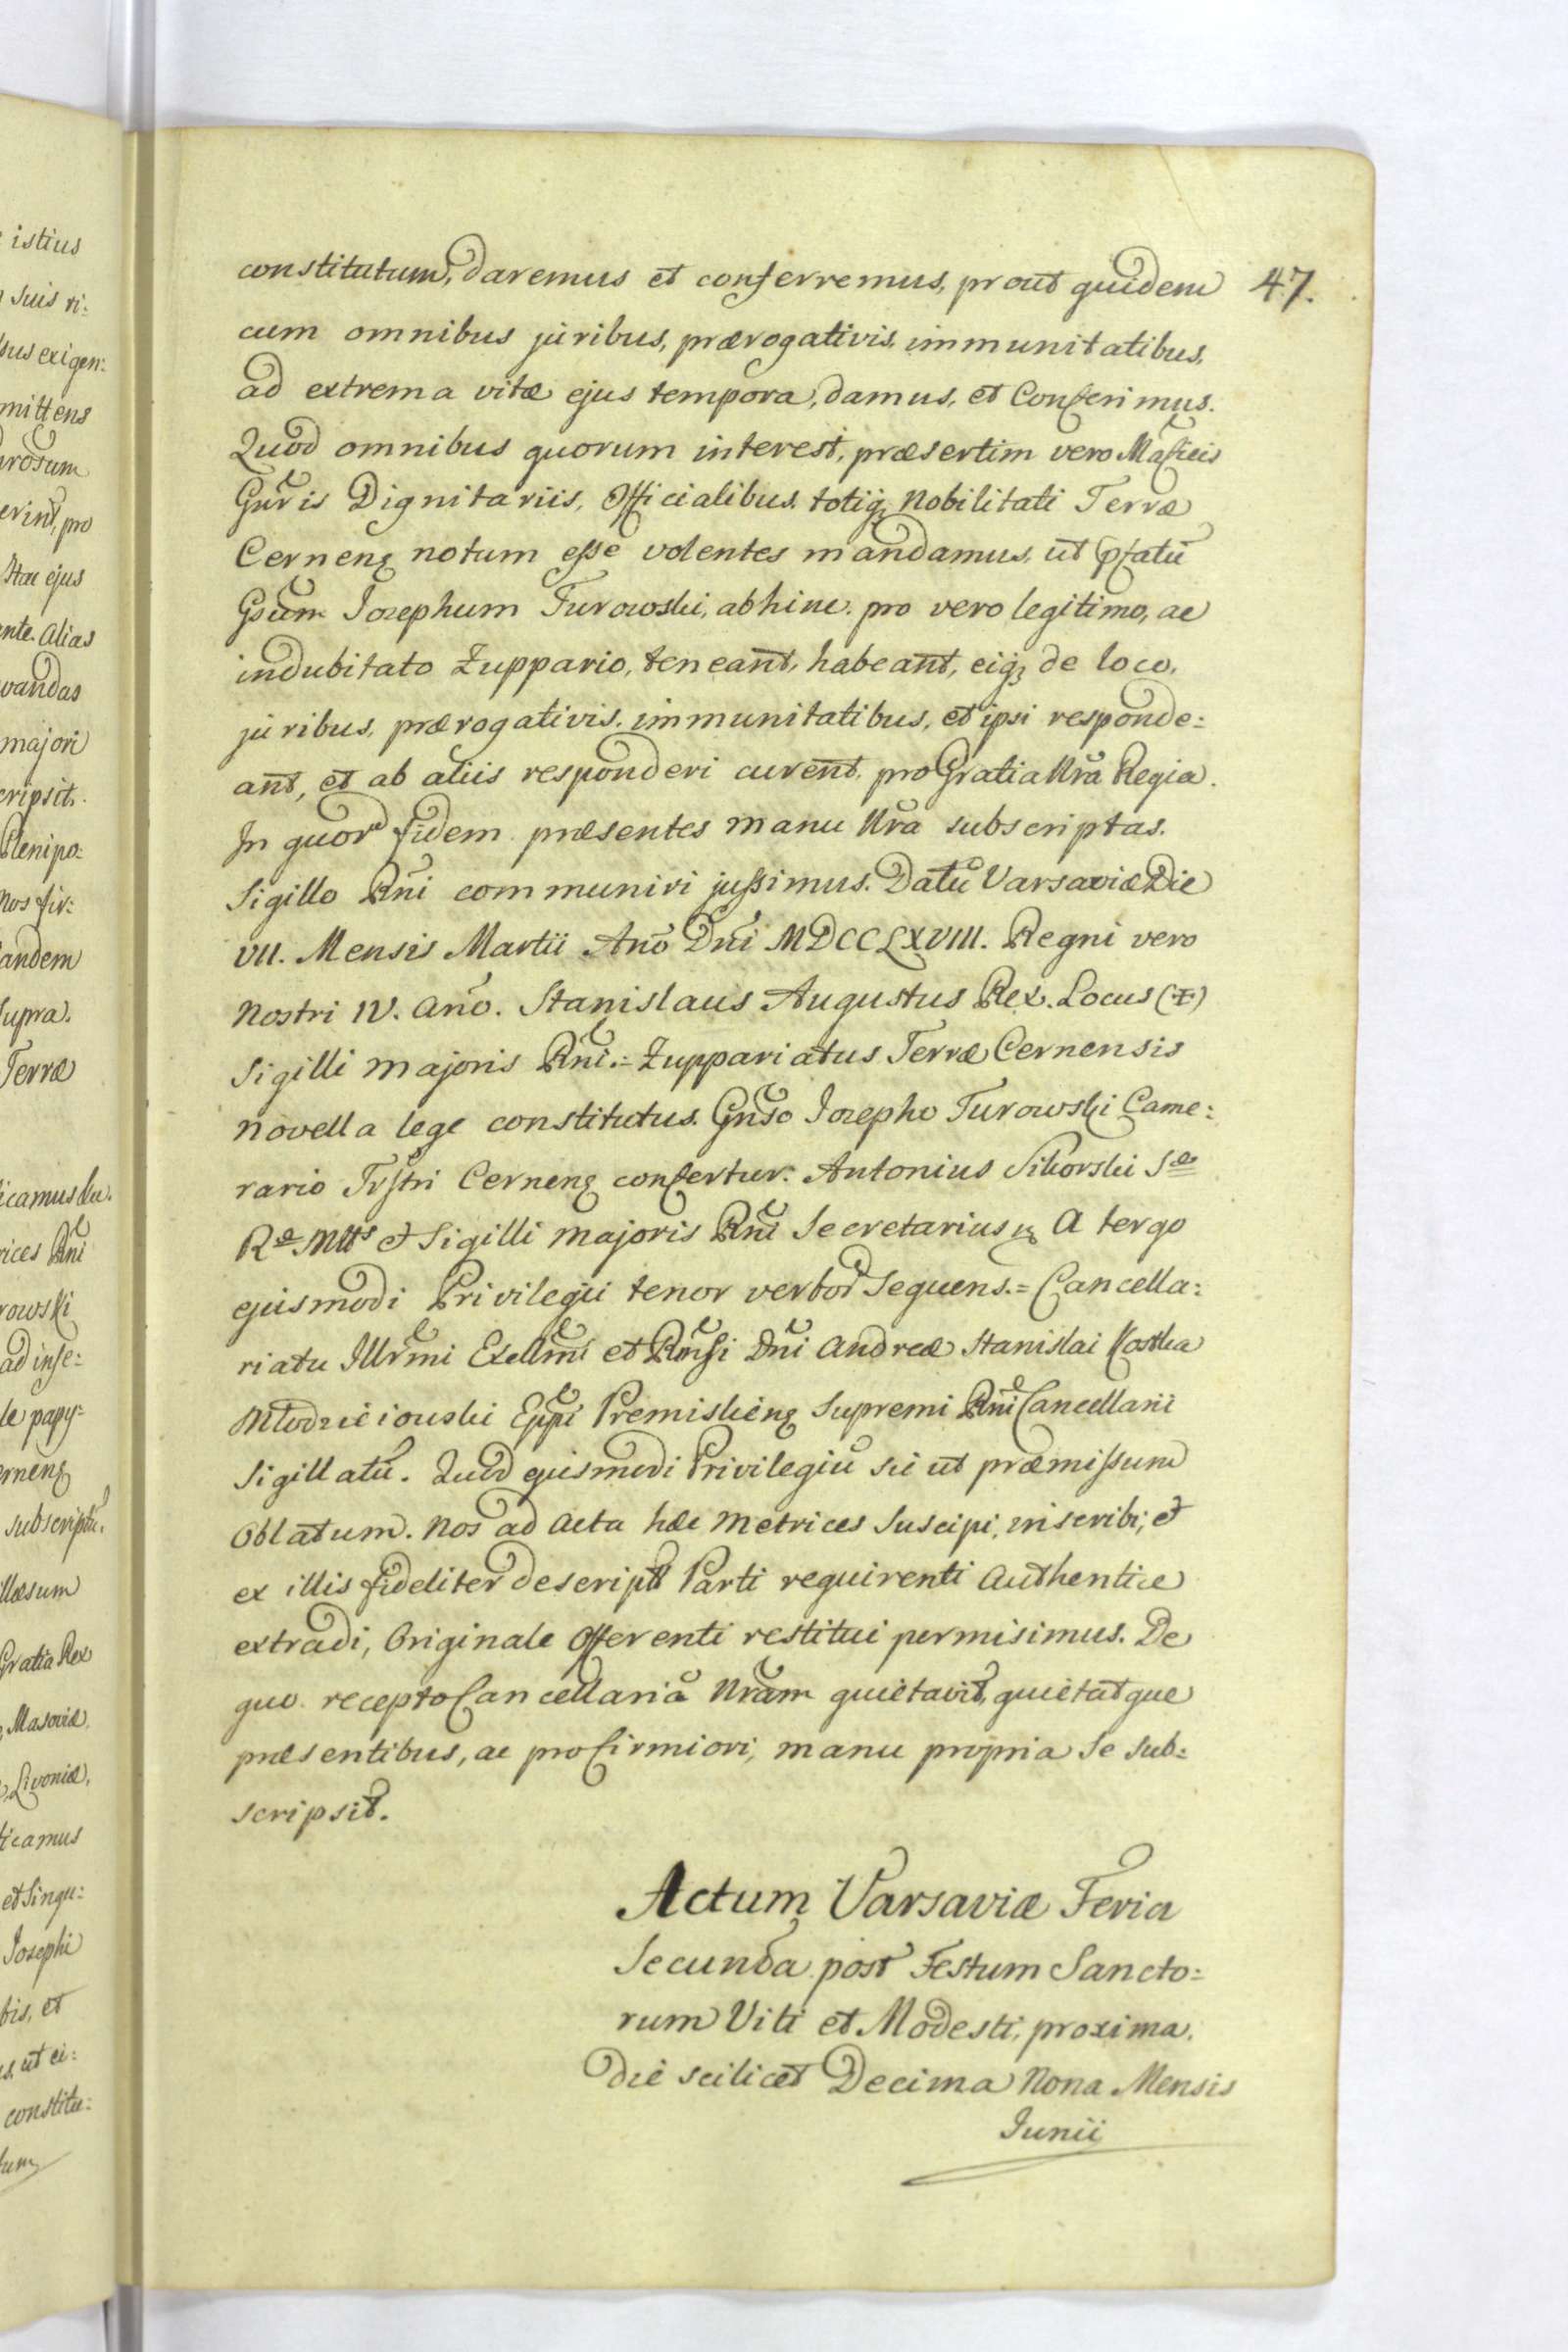 istius
suis ri:
sus exigen:
mittens
erint, pro
itae ejus
ente. Alias
vandas
majori
cripsit.
Plenipo:
Nos fir:
andem
Supra.
Terræ
rices Rni
rowski
ad inse:
le papy:
rnenʒ
subscriptū.
illæsum
Gratia Rex
Masoviæ,
Livoniæ,
ticamus
et Singu:
Josephi
bis, et
s, ut ei:
constitu:
tum
47.
constitutum, daremus et conferremus, prout quidem
cum omnibus juribus, prærogativis, immunitatibus,
ad extrema vitæ ejus tempora, damus, et Conferimus.
Quod omnibus quorum interest, præsertim vero Mağficis
Gnris Dignitariis, Officialibus, totiqȝ Nobilitati Terræ
Cernenʒ notum esse volentes mandamus, ut pfatū
Gsum Iozephum Turowski, abhinc. pro vero legitimo, ac
indubitato Zuppario, teneant, habeant, eiqȝ de loco,
juribus, prærogativis, immunitatibus, et ipsi responde:
ant, et ab aliis responderi curent, pro Gratia Nra Regia.
In quor fidem præsentes manu Nra subscriptas.
Sigillo Rni communiri jussimus. Datū Varsaviæ Die
VII. Mensis Martii Ano Dni MDCCLXVIII. Regni vero
Nostri IV. Ano. Stanislaus Augustus Rex. Locus (Ŧ)
Sigilli majoris Rni.= Zuppariatus Terræ Cernensis
novella lege constitutus. Gnso Iozepho Turowski Came:
rario Trstri Cernenʒ confertur. Antonius Sikorski Sæ
Ræ Mtts et Sigilli majoris Rni Secretarius A tergo
ejusmodi Privilegii tenor verbor Sequens.= Cancella:
riatu Illrmi Exellmi et Rndsi Dni Andreæ Stanislai Kostka
Młodzieiouski Eppi Premislienʒ Supremi Rni Cancellarii
Sigillatū. Quod ejusmodi Privilegiū sic ut præmissum
Oblatum. Nos ad Acta hæc Metrices Suscipi, inscribi, et
ex illis fideliter descript Parti requirenti Authentice
extradi, Originale Offerenti restitui permisimus. De
quo recepto Cancellariā Nram quietavit, quietatque
præsentibus, ac pro firmiori, manu propria Se Sub:
scripsit.
Actum Varsaviæ Feria
Secunda post Festum Sancto:
rum Viti et Modesti, proxima,
Die scilicet Decima Nona Mensis
Junii